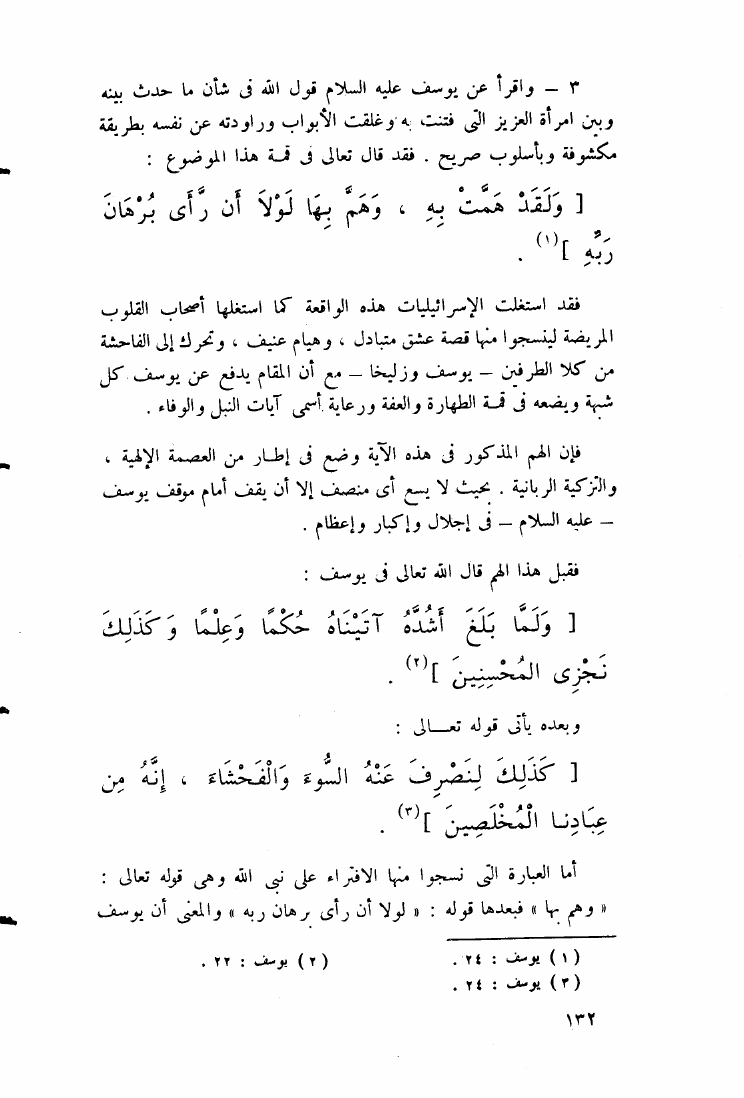 ٣ – واقرأ عن يوسف عليه السلام قول الله فى شأن ما حدث بينه
وبين امرأة العزيز التى فتنت به وغلقت الأبواب وراودته عن نفسه بطريقة
مكشوفة وبأسلوب صريح . فقد قال تعالى فى قمة هذا الموضوع :
[ وَلَقَدْ هَمَّتْ بِهِ ، وَهَمَّ بِهَا لَوْلاَ أَن رَّأَى بُرْهَانَ
رَبِّهِ ](١) .
فقد استغلت الإسرائيليات هذه الواقعة كما استغلها أصحاب القلوب
المريضة لينسجوا منها قصة عشق متبادل ، وهيام عنيف ، وتحرك إلى الفاحشة
من كلا الطرفين – يوسف وزليخا – مع أن المقام يدفع عن يوسف كل
شبهة ويضعه فى قمة الطهارة والعفة ورعاية أسمى آيات النبل والوفاء .
فإن الهم المذكور فى هذه الآية وضع فى إطار من العصمة الإلهية ،
والتزكية الربانية . بحيث لا يسع أى منصف إلا أن يقف أمام موقف يوسف
– عليه السلام – فى إجلال وإكبار وإعظام .
فقبل هذا الهم قال الله تعالى فى يوسف :
[ وَلَمَّا بَلَغَ أَشُدَّهُ آتَيْنَاهُ حُكْمًا وَعِلْمًا وَكَذَلِكَ
نَجْزِى المُحْسِنِينَ ](٢) .
وبعده يأتى قوله تعـالى :
[ كَذَلِكَ لِنَصْرِفَ عَنْهُ السُّوءَ وَالْفَحْشَاءَ ، إِنَّهُ مِن
عِبَادِنا المُخْلَصِينَ ](٣) .
أما العبارة التى نسجوا منها الافتراء على نبى الله وهى قوله تعالى :
« وهم بها » فبعدها قوله : « لولا أن رأى برهان ربه » والمعنى أن يوسف
(١) يوسف : ٢٤ . (٢) يوسف : ٢٢ .
(٣) يوسف : ٢٤ .
١٣٢